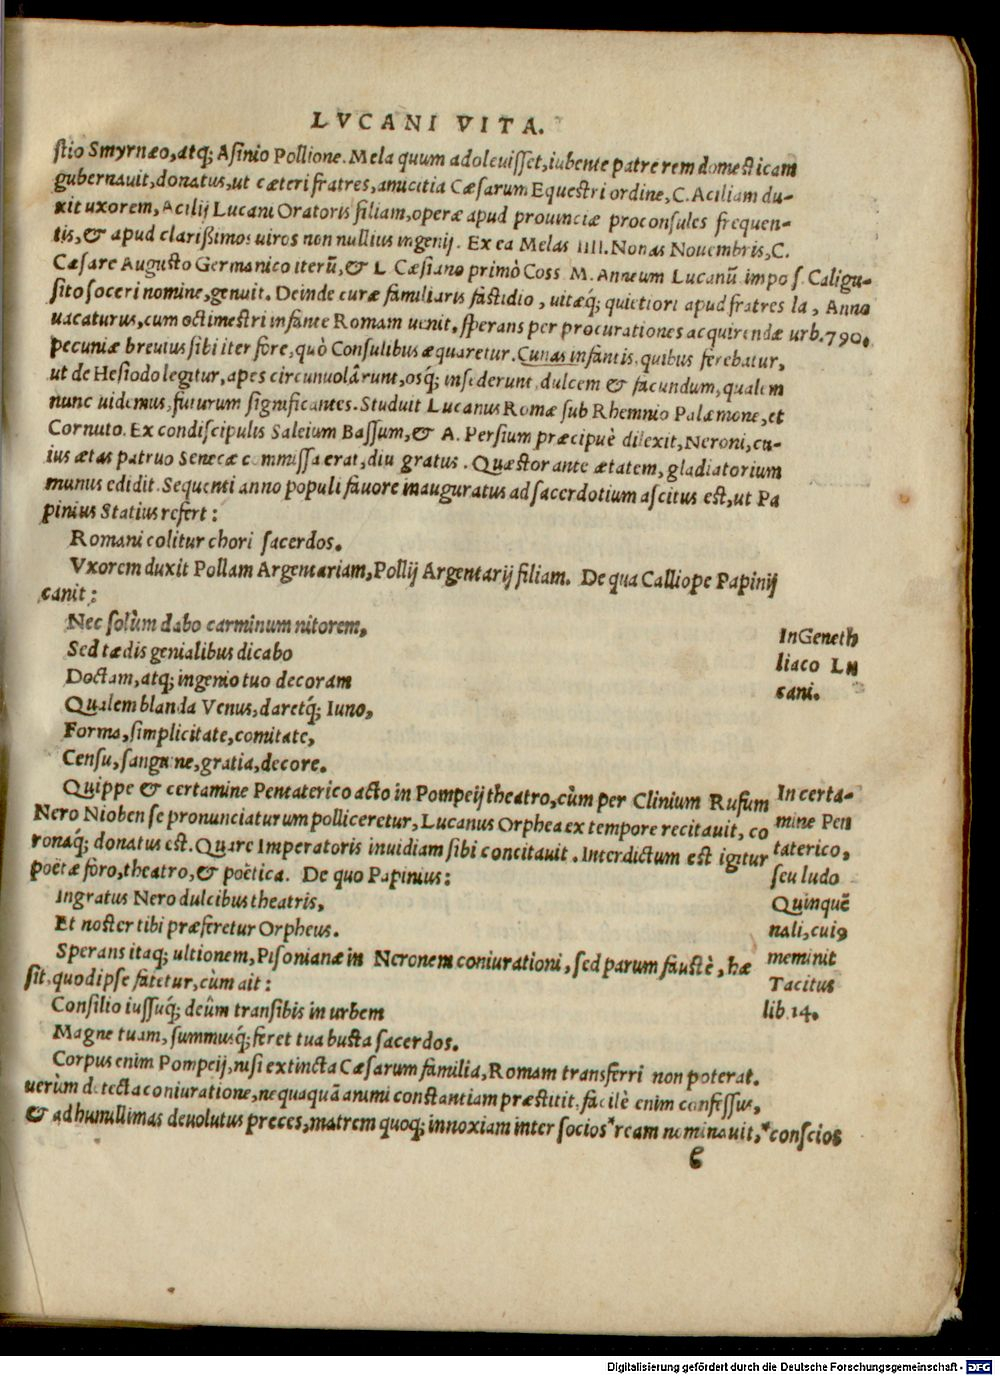 LVCANI VITA.
stio Smyrnæo, atq; Asinio Pollione. Mela quum adoleuisset, iubente patre rem domesticam
gubernauit, donatus, ut cæteri fratres, amicitia Cæsarum Equestri ordine, C. Aciliam du-
xit uxorem, Acilij Lucani Oratoris filiam, operæ apud prouinciæ proconsules frequen-
tis, & apud clarißimos uiros non nullius ingenij. Ex ea Melas IIII. Nonas Nouembris, C.
Cæsare Augusto Germanico iterũ, & L Cæsiano primò Coss M. Annæum Lucanũ impo s. Caligu-
sito soceri nomine, genuit. Deinde curæ familiaris fastidio, uitæq́; quietiori apud fratres la, Anno
uacaturus, cum octimestri infante Romam uenit, sperans per procurationes acquirendæ urb. 790.
pecuniæ breuius sibi iter fore, quò Consulibus æquaretur. Cunas infantis, quibus ferebatur,
ut de Hesiodo legitur, apes circunuolârunt, osq́; insederunt, dulcem & facundum, qualem
nunc uidemus, futurum significantes. Studuit Lucanus Romæ sub Rhemnio Palæmone, et
Cornuto. Ex condiscipulis Saleium Bassum, & A. Persium præcipuè dilexit, Neroni, cu-
ius ætas patruo Senecæ commissa erat, diu gratus. Quæstor ante ætatem, gladiatorium
munus edidit. Sequenti anno populi fauore inauguratus ad sacerdotium ascitus est, ut Pa
pinius Statius refert:
Romani colitur chori sacerdos.
Vxorem duxit Pollam Argentariam, Pollij Argentarij filiam. De qua Calliope Papinij
canit:
Nec solùm dabo carminum nitorem,
Sed tædis genialibus dicabo
Doctam, atq; ingenio tuo decoram
Qualem blanda Venus, daretq́; Iuno,
Forma, simplicitate, comitate,
Censu, sanguine, gratia, decore.
InGeneth
liaco Lu
cani.
Quippe & certamine Pentaterico acto in Pompeij theatro, cùm per Clinium Rufum
Nero Nioben se pronunciaturum polliceretur, Lucanus Orphea ex tempore recitauit, co
ronaq́; donatus est. Quare Imperatoris inuidiam sibi concitauit. Interdictum est igitur
poëtæ foro, theatro, & poëtica. De quo Papinius:
Ingratus Nero dulcibus theatris,
Et noster tibi præferetur Orpheus.
In certa-
mine Pen
taterico,
seu ludo
Quinquẽ
nali, cuiꝰ
meminit
Tacitus
lib. 14.
Sperans itaq; ultionem, Pisonianæ in Neronem coniurationi, sed parum faustè, hæ
sit, quod ipse fatetur, cùm ait:
Consilio iussuq́; deûm transibis in urbem
Magne tuam, summusq́; feret tua busta sacerdos.
Corpus enim Pompeij, nisi extincta Cæsarum familia, Romam transferri non poterat.
uerùm detecta coniuratione, nequaquã animi constantiam præstitit. facilè enim confessus,
& ad humillimas deuolutus preces, matrem quoq; innoxiam inter socios *ream nominauit, *conscios
Digitalisierung gefördert durch die Deutsche Forschungsgemeinschaft - DFG